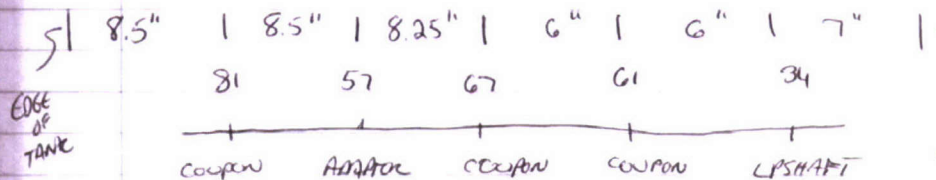 8.5" | 8.5" | 8.25" | 6" | 6" | 7" |
81 57 67 61 34
EDGE
OF
TANK
COUPON COUPON COUPON LPSHAFT